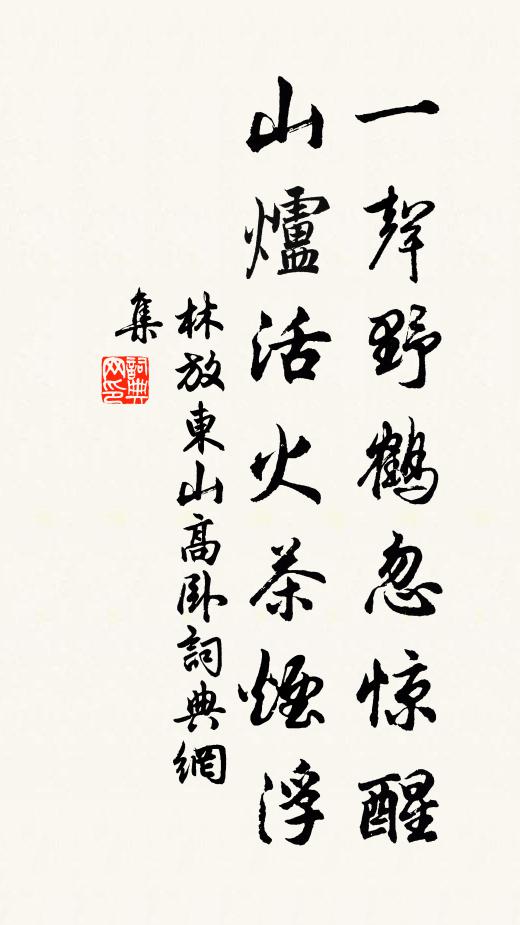 一聲野鶴忽惊醒
山爐活火茶煙浮
林放東山高卧詞典網
集
詞典
网印